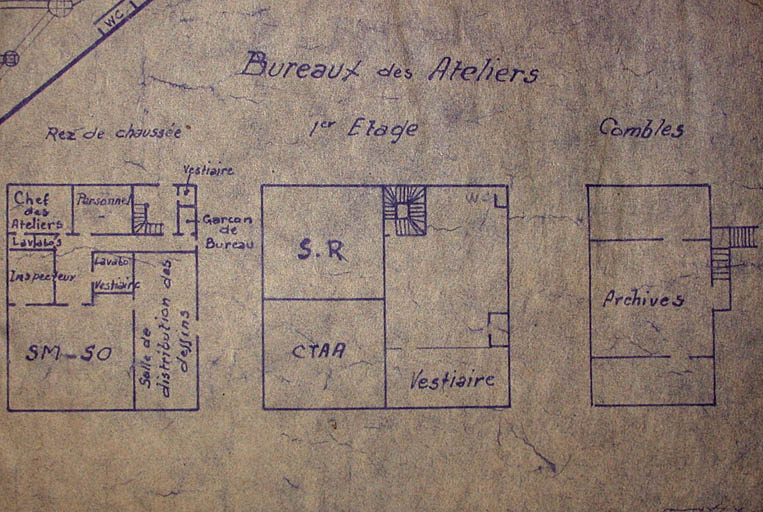 WC
Bureaux des Ateliers
Rez de chaussée
1er Etage
Combles
Vestiaire
Chef
des
Ateliers
Personnel
Garcon
de
Bureau
Lavabo's
Inspecteur
Lavabo
Vestiaire
SM-SO
Salle de
distribution des
dessins
S.R
CTAA
Vestiaire
Archives